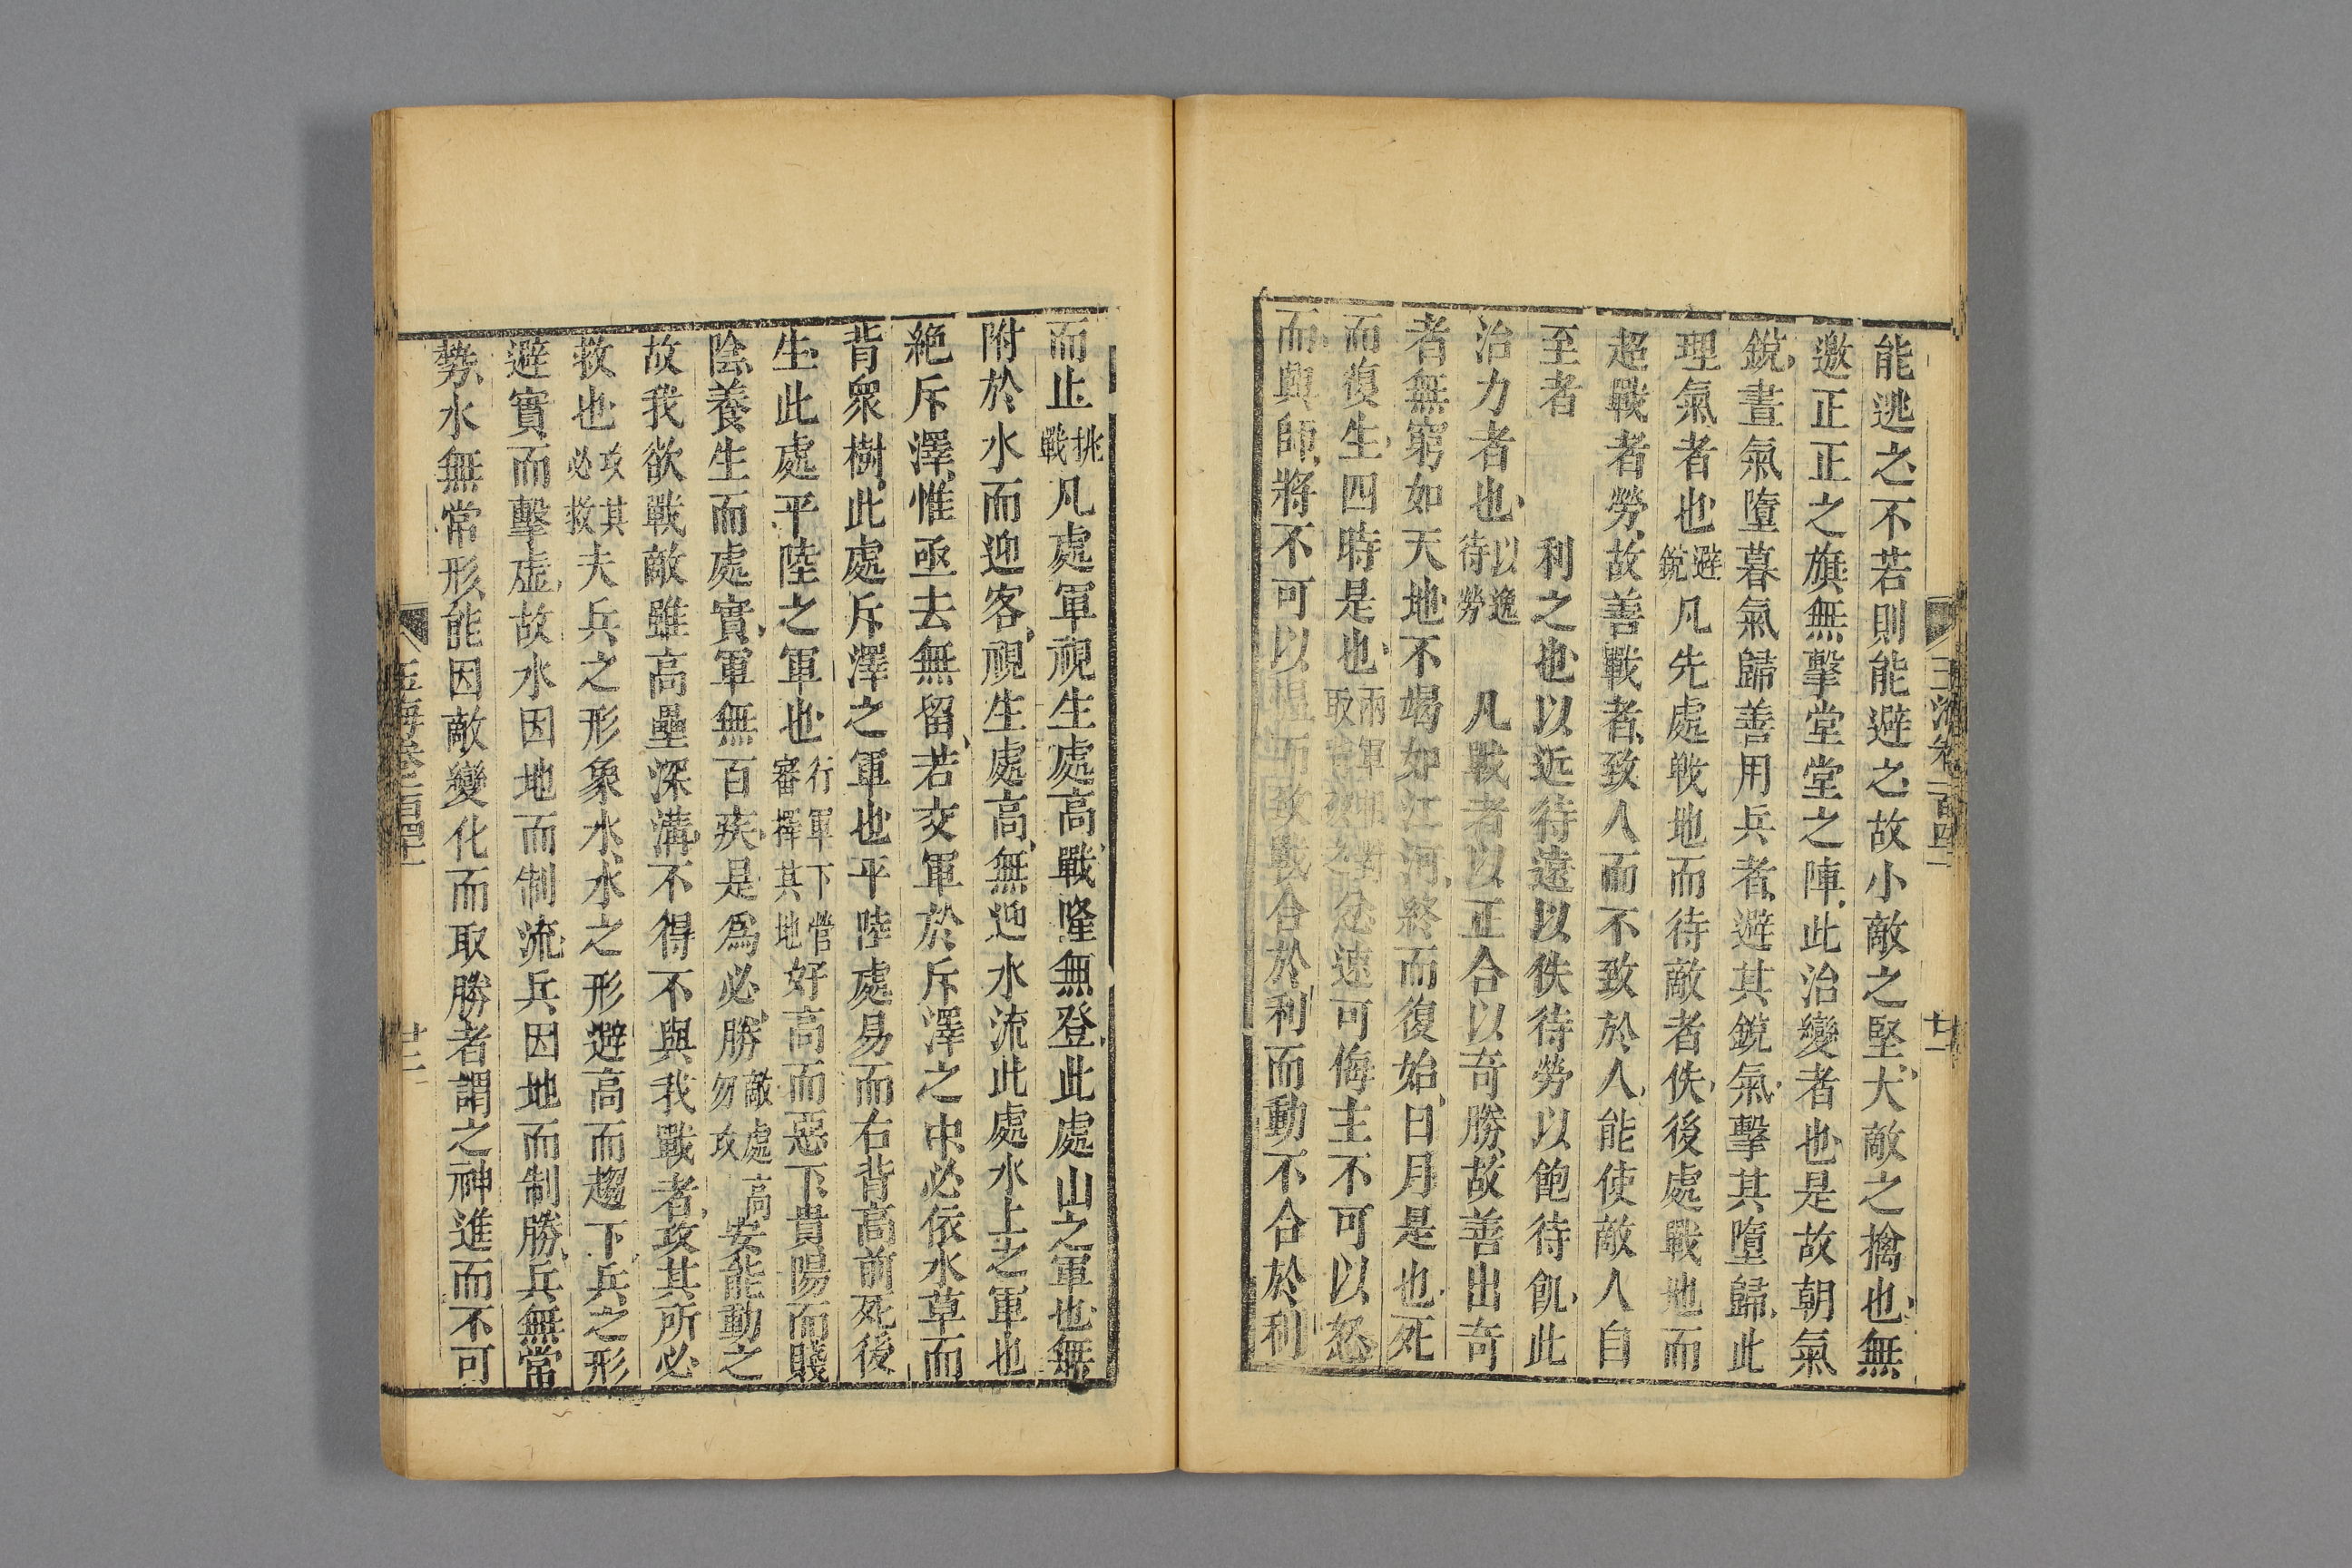 能逃之不若則能避之故小敵之堅大敵之擒也無
邀正正之旗無擊堂堂之陣此治變者也是故朝氣
銳晝氣墮暮氣歸善用兵者避其銳氣擊其墮歸此
理氣者也避銳凡先處戰地而待敵者佚後處戰地而
趨戰者勞故善戰者致人而不致於人能使敵人自
至者利之也以近待遠以佚待勞以飽待飢此
治力者也以逸待勞凡戰者以正合以奇勝故善出奇
者無窮如天地不竭如江河終而復始日月是也死
而復生四時是也兩軍取忿速可侮主不可以怒
而興師將不可以而致戰合於利而動不合於利
而止挑戰凡處軍視生處高戰隆無登此處山之軍也無
附於水而迎客視生處高無迎水流此處水上之軍也
絶斥澤惟亟去無留若交軍於斥澤之中必依水草而
背衆樹此處斥澤之軍也平陸處易而右背高前死後
生此處平陸之軍也行軍下營審擇其地好高而惡下貴陽而賤
陰養生而處實軍無百疾是爲必勝敵處高勿攻安能動之
故我欲戰敵雖高壘深溝不得不與我戰者攻其所必
救也攻其必救夫兵之形象水水之形避高而趨下兵之形
避實而擊虛故水因地而制流兵因地而制勝兵無常
勢水無常形能因敵變化而取勝者謂之神進而不可
玉海卷一百四十一
廿一
玉海卷一百四十一
廿二